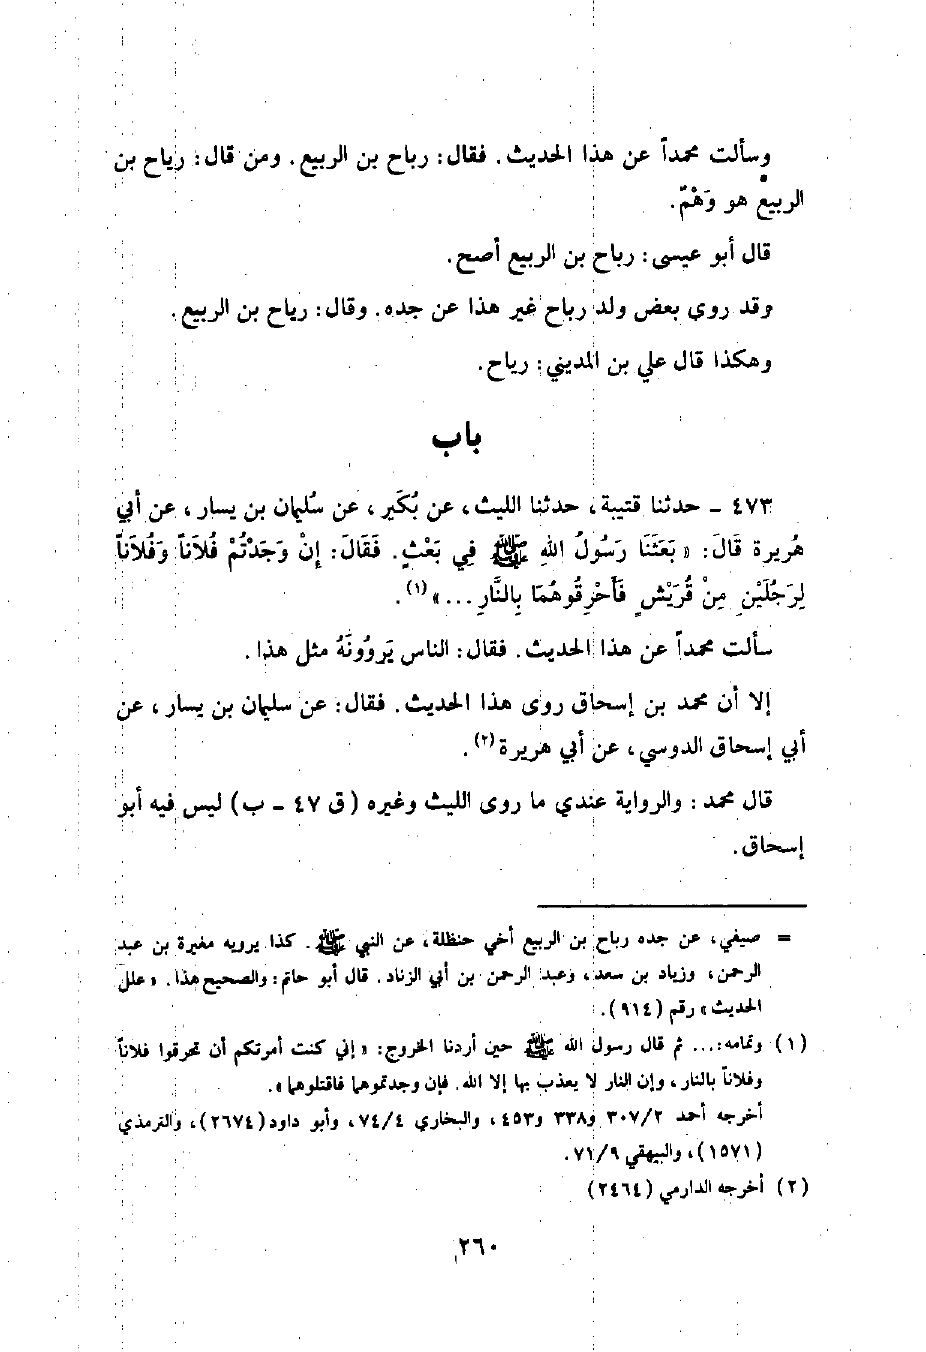 وسألت محمداً عن هذا الحديث. فقال: رباح بن الربيع. ومن قال: رياح بن
الربيع هو وَهْمٌ.
قال أبو عيسى: رباح بن الربيع أصح.
وقد روي بعض ولد رباح غير هذا عن جده. وقال: رياح بن الربيع.
وهكذا قال علي بن المديني: رياح.
باب
٤٧٣ - حدثنا قتيبة، حدثنا الليث، عن بُكَير، عن سُليمان بن يسار، عن أبي
هُريرة قَالَ: «بَعَثَنَا رَسُولُ اللهِ ﷺ فِي بَعْثٍ. فَقَالَ: إِنْ وَجَدْتُمْ فُلَاناً وَفُلَاناً
لِرَجُلَيْنِ مِنْ قُرَيْشٍ فَأَحْرِقُوهُمَا بِالنَّارِ...»(١).
سألت محمداً عن هذا الحديث. فقال: الناس يَروُونَهُ مثل هذا.
إلا أن محمد بن إسحاق روى هذا الحديث. فقال: عن سليمان بن يسار، عن
أبي إسحاق الدوسي، عن أبي هريرة(٢).
قال محمد: والرواية عندي ما روى الليث وغيره (ق ٤٧ - ب) ليس فيه أبو
إسحاق.
= صيفي، عن جده رباح بن الربيع أخي حنظلة، عن النبي ﷺ. كذا يرويه مغيرة بن عبد
الرحمن، وزياد بن سعد، وعبد الرحمن بن أبي الزناد. قال أبو حاتم: والصحيح هذا. «علل
الحديث» رقم (٩١٤).
(١) وتمامه:... ثم قال رسول الله ﷺ حين أردنا الخروج: «إني كنت أمرتكم أن تحرقوا فلاناً
وفلاناً بالنار، وإن النار لا يعذب بها إلا الله. فإن وجدتموهما فاقتلوهما».
أخرجه أحمد ٣٠٧/٢ و٣٣٨ و٤٥٣، والبخاري ٧٤/٤، وأبو داود (٢٦٧٤)، والترمذي
(١٥٧١)، والبيهقي ٧١/٩.
(٢) أخرجه الدارمي (٢٤٦٤)
٢٦٠